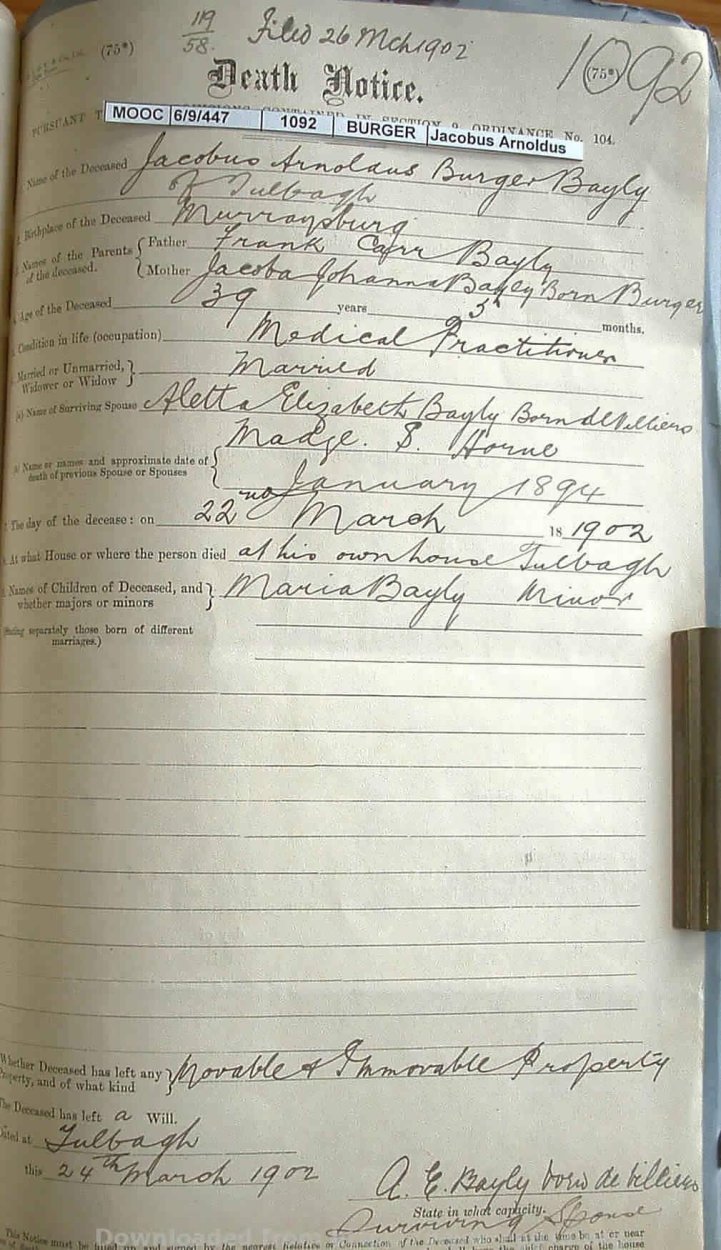 119
58.
Filed 26 Mch 1902
1092
(75*)
(75*)
Death Notice.
PURSUANT T CONTAINED IN SECTION 9, ORDINANCE No. 104.
MOOC 6/9/447 1092 BURGER Jacobus Arnoldus
Name of the Deceased Jacobus Arnoldus Burger Bayly
of Tulbagh
Birthplace of the Deceased Murraysburg
Names of the Parents of the deceased. { Father Frank Carr Bayly
Mother Jacoba Johanna Bayly Born Burger
Age of the Deceased 39 years 5 months.
Condition in life (occupation) Medical Practitioner
Married or Unmarried, Widower or Widow } Married
(a) Name of Surviving Spouse Aletta Elizabeth Bayly Born de Villiers
Name or names and approximate date of death of previous Spouse or Spouses { Madge. S. Horne
January 1894
The day of the decease: on 22nd March 18 1902
At what House or where the person died at his own house Tulbagh
Names of Children of Deceased, and whether majors or minors } Maria Bayly Minor
(Stating separately those born of different marriages.)
Whether Deceased has left any Property, and of what kind } Movable & Immovable Property
The Deceased has left a Will.
Dated at Tulbagh
this 24th March 1902
A. E. Bayly born de Villiers
State in what capacity.
Surviving Spouse
This Notice must be filled up and signed by the nearest Relative or Connection of the Deceased who shall at the time be at or near
Downloaded